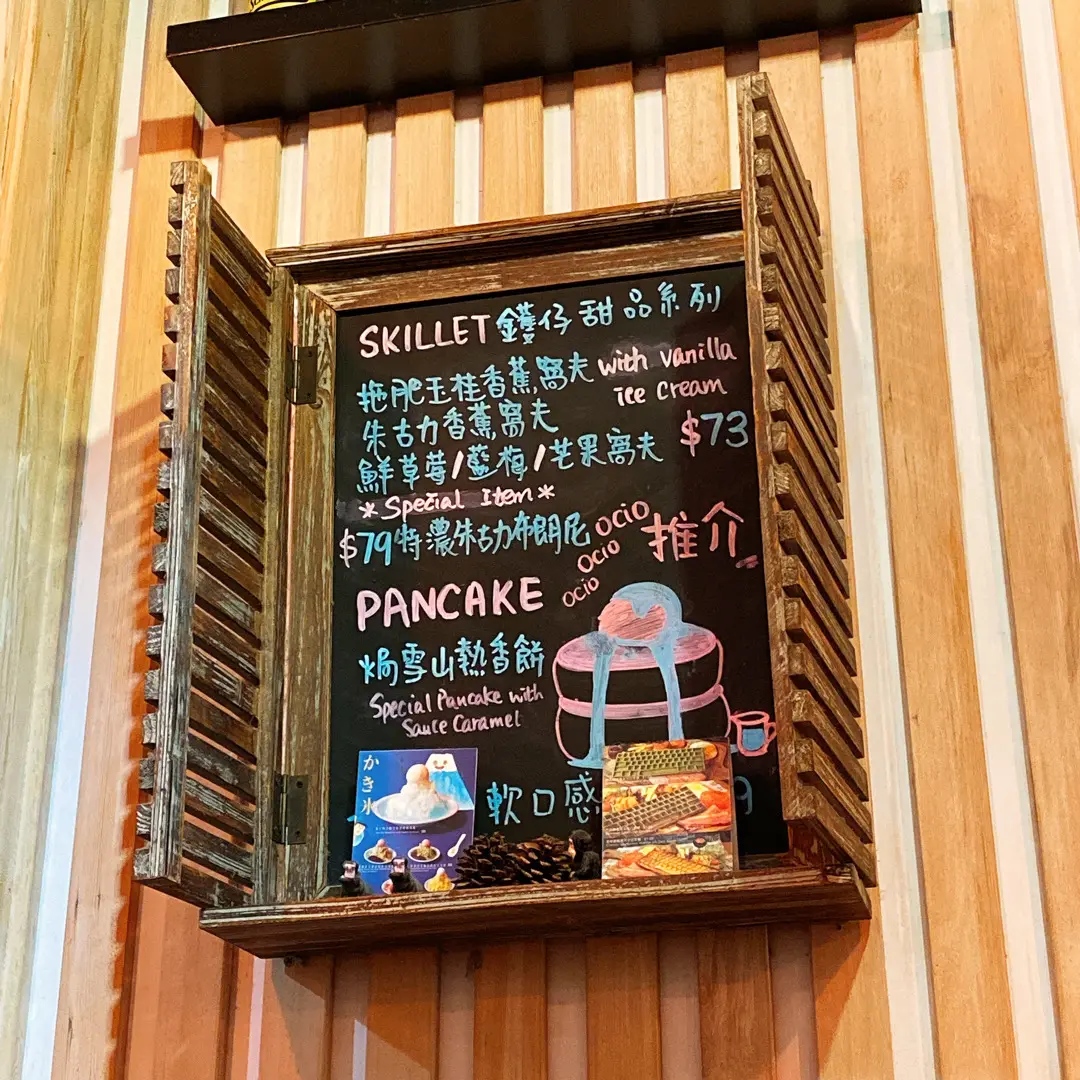 SKILLET 鑊仔甜品系列
拖肥玉桂香蕉窩夫 with vanilla
ice cream
朱古力香蕉窩夫
$73
鮮草莓/藍梅/芒果窩夫
*Special Item*
$79特濃朱古力布朗尼
OCIO
OCIO
OCIO
推介
PANCAKE
焗雪山熱香餅
Special Pancake with
Sauce Caramel
軟口感
9
かき氷